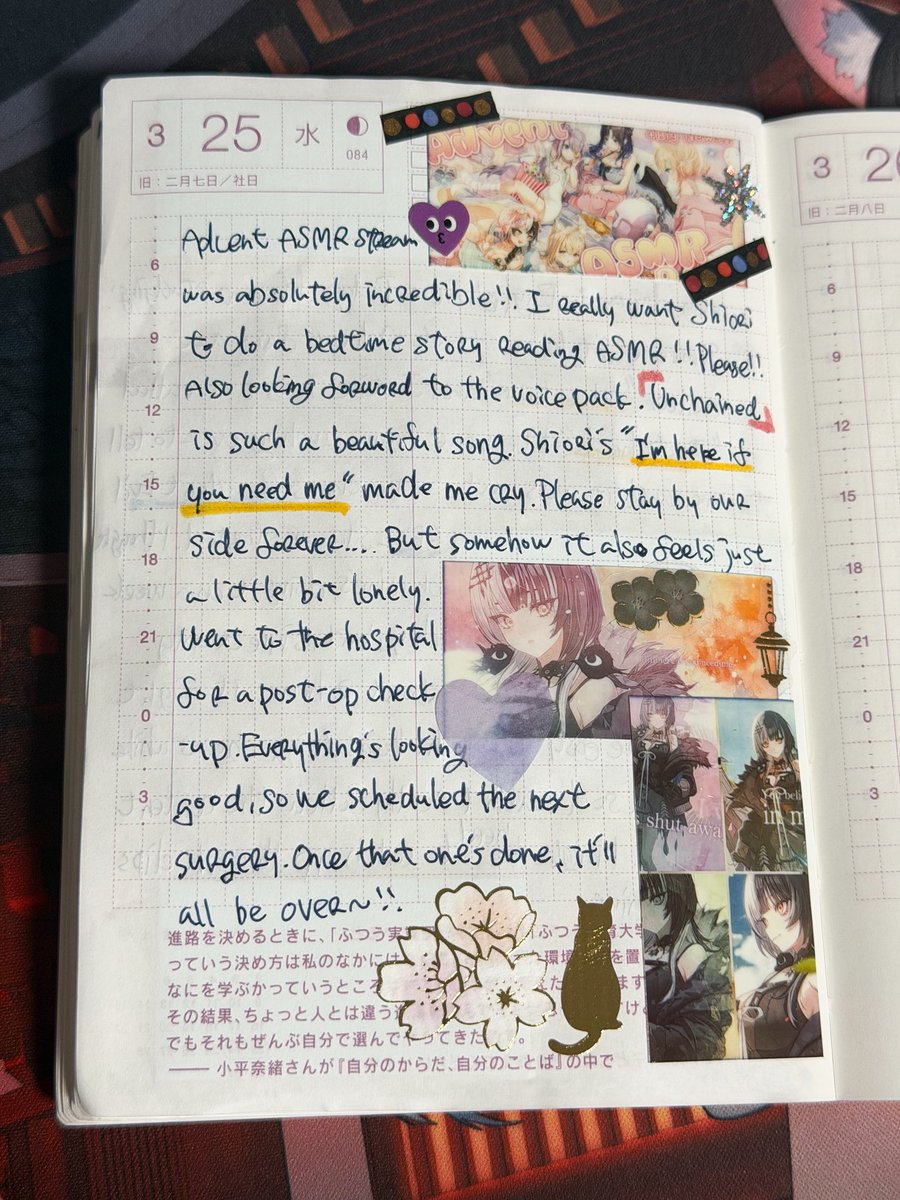 3 25 水
084
旧：二月七日／社日
Advent
ASMR
Advent ASMR stream
was absolutely incredible!! I really want Shiori
to do a bedtime story reading ASMR!! Please!!
Also looking forword to the voice pack.「Unchained」
is such a beautiful song. Shiori's "I'm here if
you need me" made me cry. Please stay by our
side forever.... But somehow it also feels just
a little bit lonely.
Went to the hospital
for a post-op check
-up. Everything's looking
good, so we scheduled the next
surgery. Once that one's done, it'll
all be over~!!
6
9
12
15
18
21
0
3
shut awa
in m
進路を決めるときに、「ふつう実 「ふつう 育大学
っていう決め方は私のなかには 環境 を置
なにを学ぶかっていうところ た ます
その結果、ちょっと人とは違う け
でもそれもぜんぶ自分で選んで ってきた 。
―― 小平奈緒さんが『自分のからだ、自分のことば』の中で
3 2
旧：二月八日
6
9
12
15
18
21
0
3